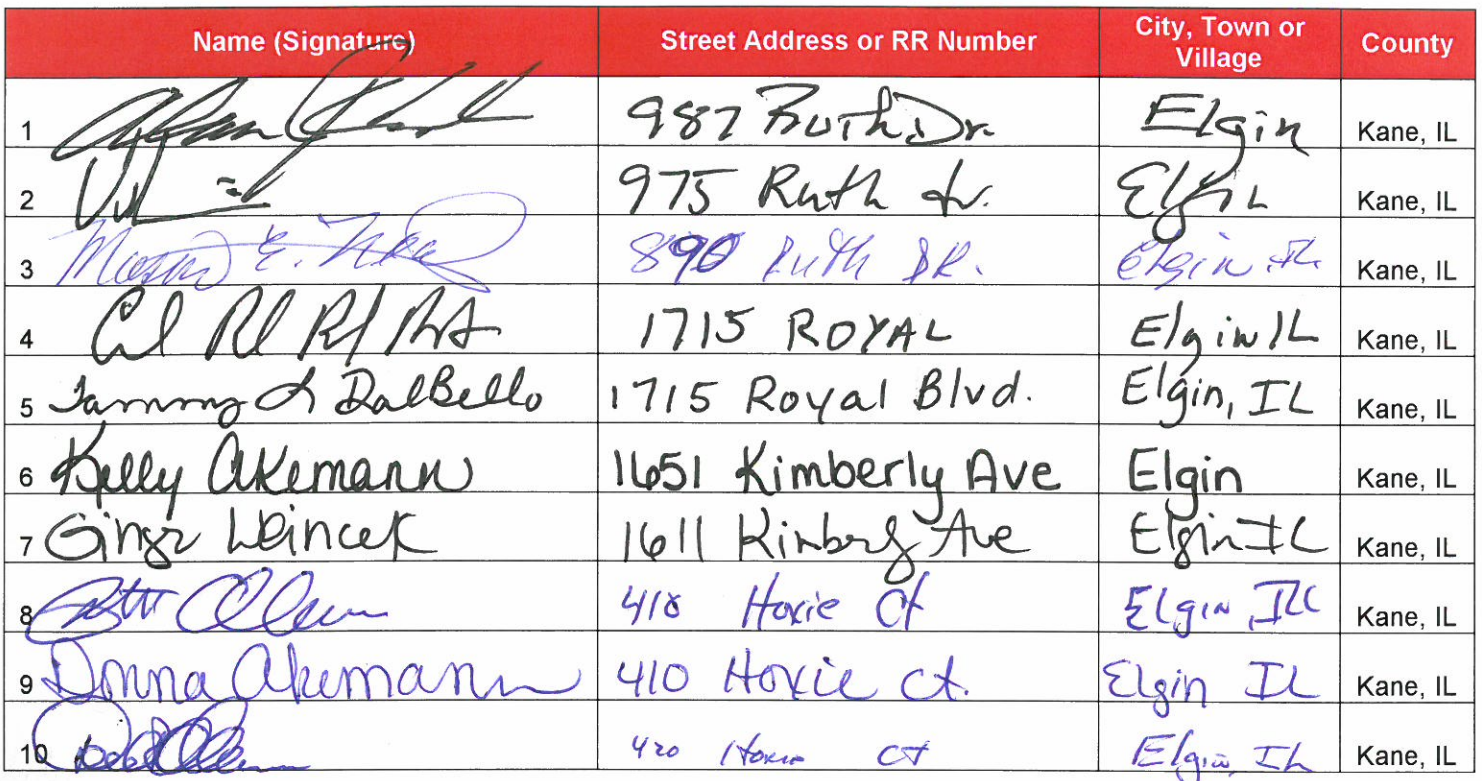 Name (Signature) Street Address or RR Number City, Town or Village County
1 987 Ruth Dr. Elgin Kane, IL
2 975 Ruth dr. Elgin Kane, IL
3 E. 890 Ruth DR. Elgin, IL Kane, IL
4 1715 ROYAL Elgin IL Kane, IL
5 Tammy L DalBello 1715 Royal Blvd. Elgin, IL Kane, IL
6 Kelly Akemann 1651 Kimberly Ave Elgin Kane, IL
7 Ginger Weincek 1611 Kimberly Ave Elgin IL Kane, IL
8 418 Hoxie Ct Elgin, Ill Kane, IL
9 Donna Akemann 410 Hoxie Ct. Elgin IL Kane, IL
10 420 Hoxie CT Elgin, IL Kane, IL